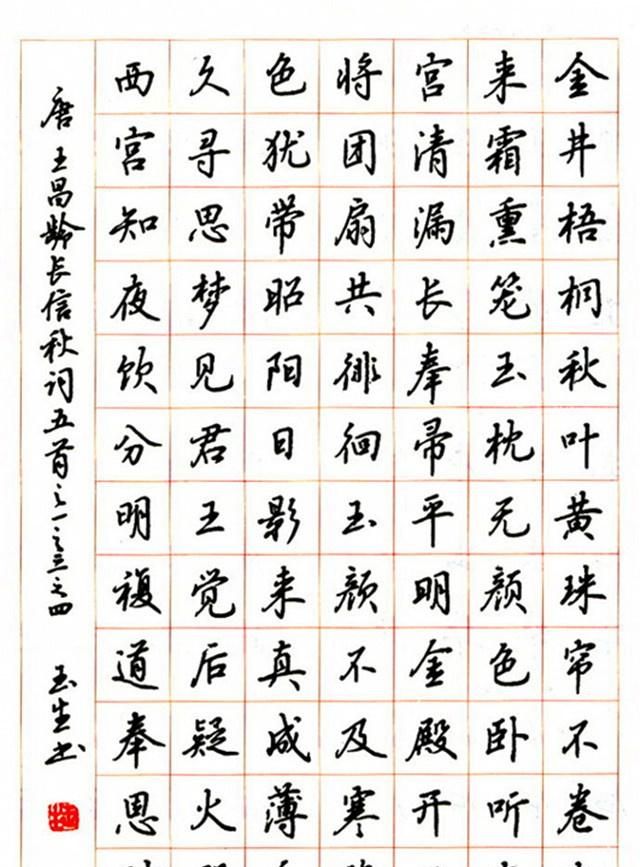 金井梧桐秋叶黄珠帘不卷
来霜熏笼玉枕无颜色卧听
宫清漏长奉帚平明金殿开
将团扇共徘徊玉颜不及寒
色犹带昭阳日影来真成薄
久寻思梦见君王觉后疑火
西宫知夜饮分明複道奉恩
唐王昌龄长信秋词五首之一之三之四 玉生书